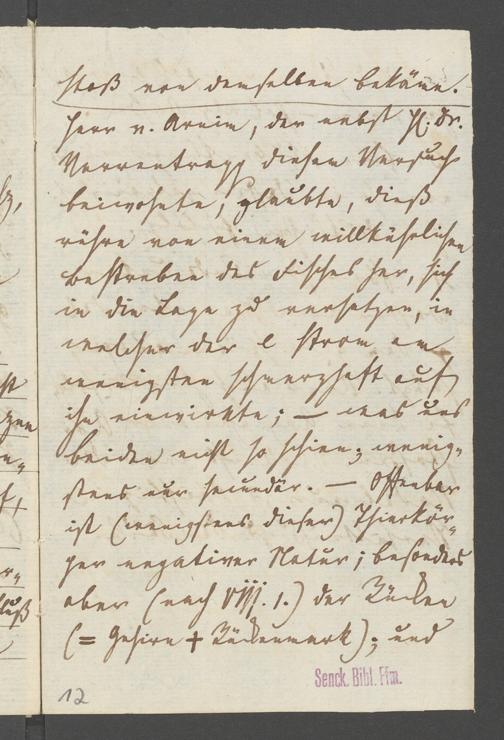 stoß von demselben bekäme.
Herr v. Arnim, der nebst H. Dr.
Varrentrapp diesem Versuch
beiwohnte, glaubte, dieß
rühre von einem willkührlichen
Bestreben des Fisches her, sich
in die Lage zu versetzen, in
welcher der e Strom am
wenigsten schmerzhaft auf
ihn einwirkte; — was uns
beiden nicht so schien; wenig-
stens nur secundär. — Offenbar
ist (wenigstens dieser) Thierkör-
per negativer Natur; besonders
aber (nach VIII. 1.) der Rücken
(= Gehirn + Rückenmark); und
Senck. Bibl. Ffm.
12